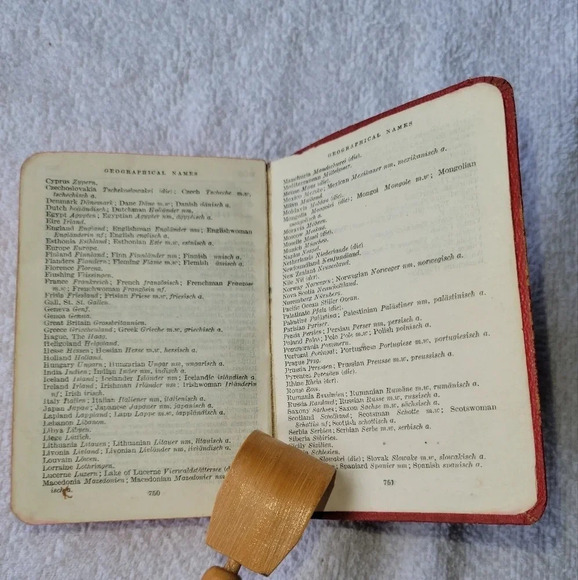 GEOGRAPHICAL NAMES
Cyprus Zypern.
Czechoslovakia Tschechoslowakei (die); Czech Tscheche m.w;
tschechisch a.
Denmark Dänemark; Dane Däne m.w; Danish dänisch a.
Dutch holländisch; Dutchman Holländer nm.
Egypt Ägypten; Egyptian Ägypter nm, ägyptisch a.
Eire Irland.
England England; Englishman Engländer nm; Englishwoman
Engländerin nf; English englisch a.
Esthonia Estland; Esthonian Este m.w, estnisch a.
Europe Europa.
Finland Finnland; Finn Finnländer nm; Finnish finnisch a.
Flanders Flandern; Fleming Flame m.w; Flemish flämisch a.
Florence Florenz.
Flushing Vlissingen.
France Frankreich; French französisch; Frenchman Franzose
m.w; Frenchwoman Französin nf.
Frisia Friesland; Frisian Friese m.w; friesisch a.
Gall, St. St. Gallen.
Geneva Genf.
Genoa Genua.
Great Britain Grossbritannien.
Greece Griechenland; Greek Grieche m.w; griechisch a.
Hague, The Haag.
Heligoland Helgoland.
Hesse Hessen; Hessian Hesse m.w, hessisch a.
Holland Holland.
Hungary Ungarn; Hungarian Ungar nm, ungarisch a.
India Indien; Indian Inder nm, indisch a.
Iceland Island; Icelander Isländer nm; Icelandic isländisch a.
Ireland Irland; Irishman Irländer nm; Irishwoman Irländerin
nf; Irish irisch.
Italy Italien; Italian Italiener nm, italienisch a.
Japan Japan; Japanese Japaner nm, japanisch a.
Lapland Lappland; Lapp Lappe m.w, lappländisch a.
Lebanon Libanon.
Libya Libyen.
Liege Lüttich.
Lithuania Litauen; Lithuanian Litauer nm, litauisch a.
Livonia Livland; Livonian Livländer nm, livländisch a.
Louvain Löwen.
Lorraine Lotharingen.
Lucerne Luzern; Lake of Lucerne Vierwaldstättersee
Macedonia Mazedonien; Macedonian Mazedonier nm,
isch a.
750
GEOGRAPHICAL NAMES
Manchuria Mandschurei (die).
Mediterranean Mittelmeer.
Meuse Maas (die).
Mexico Mexiko; Mexican Mexikaner nm, mexikanisch a.
Milan Mailand.
Moldavia Moldau (die).
Mongolia Mongolei (die); Mongol Mongole m.w; Mongolian
mongolisch a.
Moravia Mähren.
Moscow Moskau.
Moselle Mosel (die).
Munich München.
Naples Neapel.
Netherlands Niederlande (die)
Newfoundland Neufundland.
New Zealand Neuseeland.
Nile Nil (der).
Norway Norwegen; Norwegian Norweger nm, norwegisch a.
Nova Scotia Neuschottland.
Nuremberg Nürnberg.
Pacific Ocean Stiller Ozean.
Palatinate Pfalz (die).
Palestine Palästina; Palestinian Palästiner nm, palästinisch a.
Parisian Pariser.
Persia Persien; Persian Perser nm, persisch a.
Poland Polen; Pole Pole m.w; Polish polnisch a.
Pomerania Pommern.
Portugal Portugal; Portuguese Portugiese m.w, portugiesisch a.
Prague Prag.
Prussia Preussen; Prussian Preusse m.w, preussisch a.
Pyrenees Pyrenäen (die).
Rhine Rhein (der).
Rome Rom.
Rumania Rumänien; Rumanian Rumäne m.w, rumänisch a.
Russia Russland; Russian Russe m.w, russisch a.
Saxony Sachsen; Saxon Sachse m.w, sächsisch a.
Scotland Schottland; Scotsman Schotte m.w; Scotswoman
Schottin nf; Scottish schottisch a.
Serbia Serbien; Serbian Serbe m.w, serbisch a.
Siberia Sibirien.
Sicily Sizilien.
Schlesien.
(die); Slovak Slowake m.w, slowakisch a.
Spaniard Spanier nm; Spanish spanisch a.
751